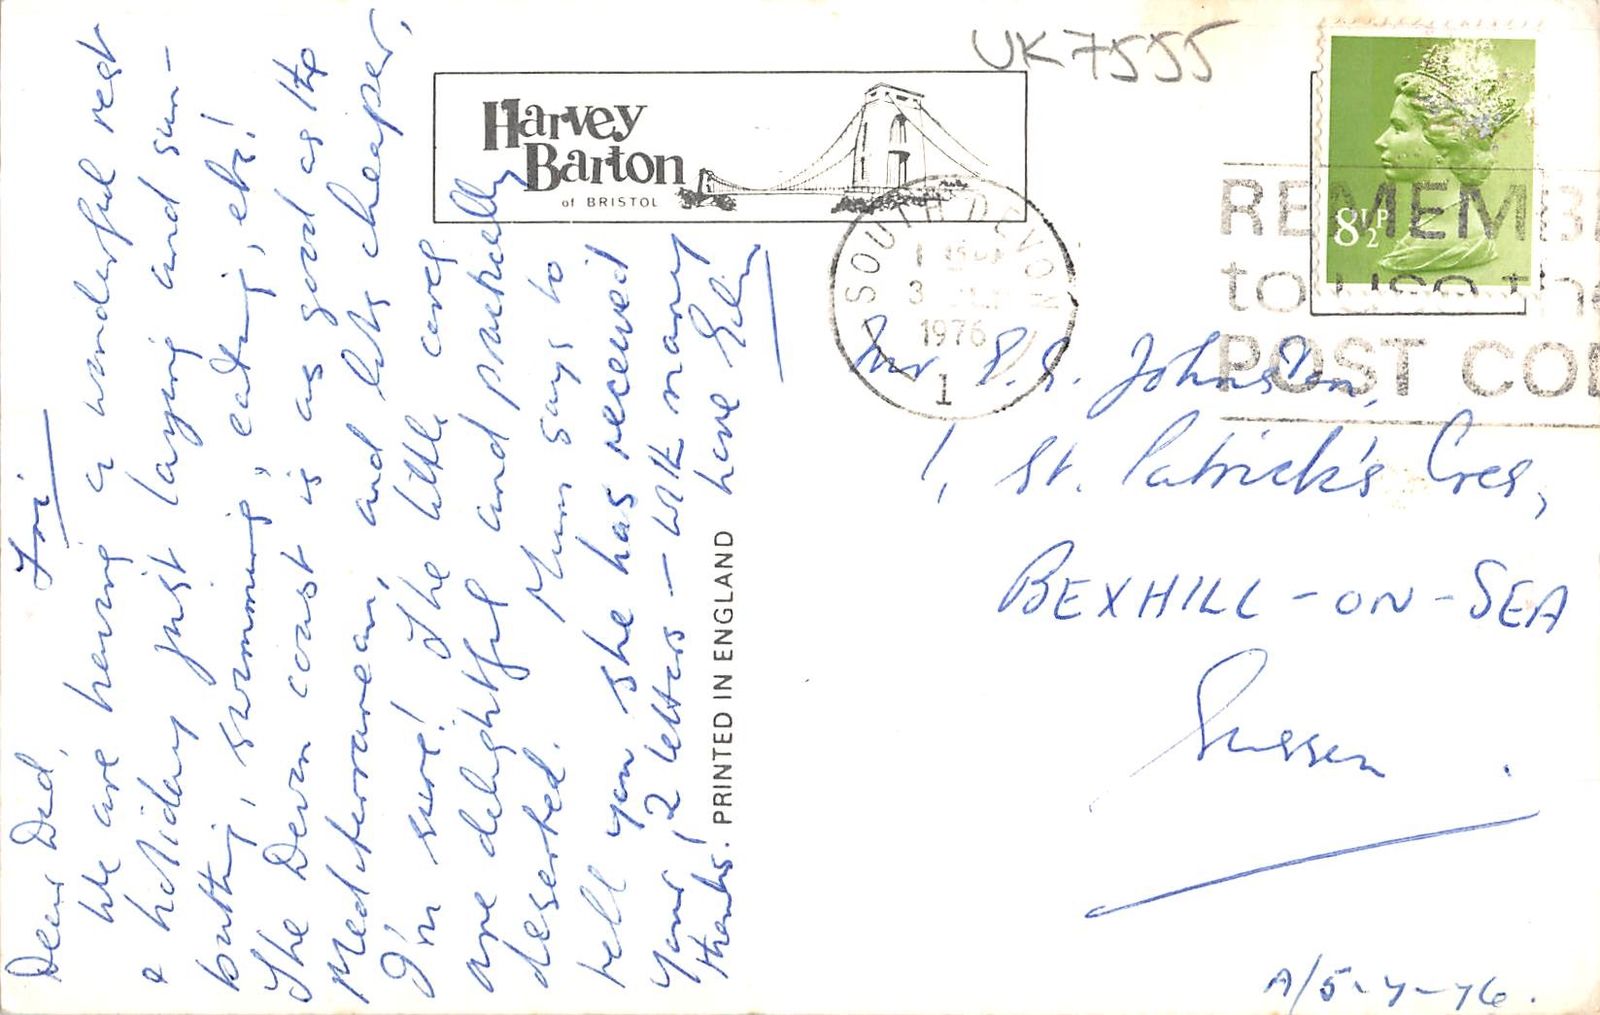 Fri
Dear Dad,
We are having a wonderful rest
& holiday just laying and sun-
bathing, swimming, eating, etc!
The Devon coast is as good as the
Mediterranean, and lots cheaper,
I'm sure! The little coves
are delightful and practically
deserted. Mum says to
tell you she has received
your 2 letters — with many
thanks!
love
PRINTED IN ENGLAND
Harvey
Barton
of BRISTOL
UK7555
8½P
SOUTH DEVON
3
1976
1
REMEMB
to use the
POST COD
Mr Johnston,
1, St. Patrick's Cres,
BEXHILL-ON-SEA
Sussex.
A/5-7-76.